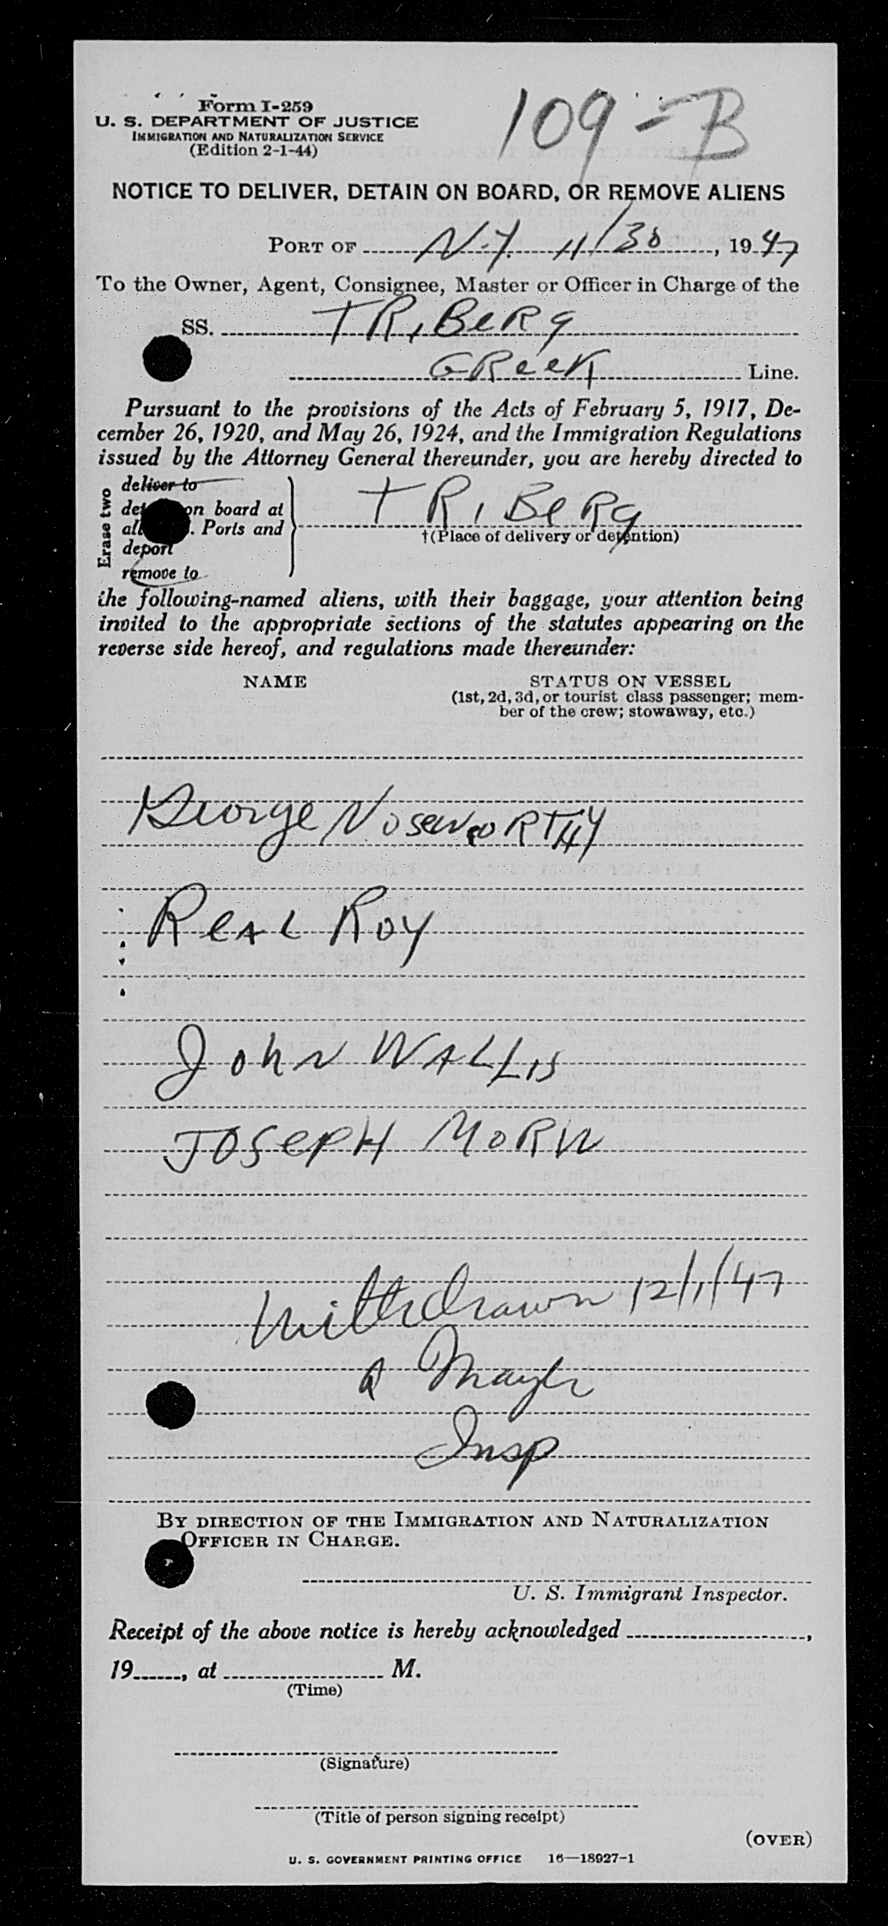 Form I-259
109-B
U. S. DEPARTMENT OF JUSTICE
IMMIGRATION AND NATURALIZATION SERVICE
(Edition 2-1-44)
NOTICE TO DELIVER, DETAIN ON BOARD, OR REMOVE ALIENS
PORT OF N.Y. 11/30, 1947
To the Owner, Agent, Consignee, Master or Officer in Charge of the
SS. TRIBERG
GREEK Line.
Pursuant to the provisions of the Acts of February 5, 1917, De-
cember 26, 1920, and May 26, 1924, and the Immigration Regulations
issued by the Attorney General thereunder, you are hereby directed to
Erase two
deliver to
on board at
Ports and
deport
remove to
TRIBERG
†(Place of delivery or detention)
the following-named aliens, with their baggage, your attention being
invited to the appropriate sections of the statutes appearing on the
reverse side hereof, and regulations made thereunder:
NAME STATUS ON VESSEL
(1st, 2d, 3d, or tourist class passenger; mem-
ber of the crew; stowaway, etc.)
George NOSEWORTHY
REAL ROY
JOHN WALLIS
JOSEPH MORN
Withdrawn 12/1/47
Insp
BY DIRECTION OF THE IMMIGRATION AND NATURALIZATION
OFFICER IN CHARGE.
U. S. Immigrant Inspector.
Receipt of the above notice is hereby acknowledged ,
19 , at M.
(Time)
(Signature)
(Title of person signing receipt)
(OVER)
U. S. GOVERNMENT PRINTING OFFICE 16—18927-1